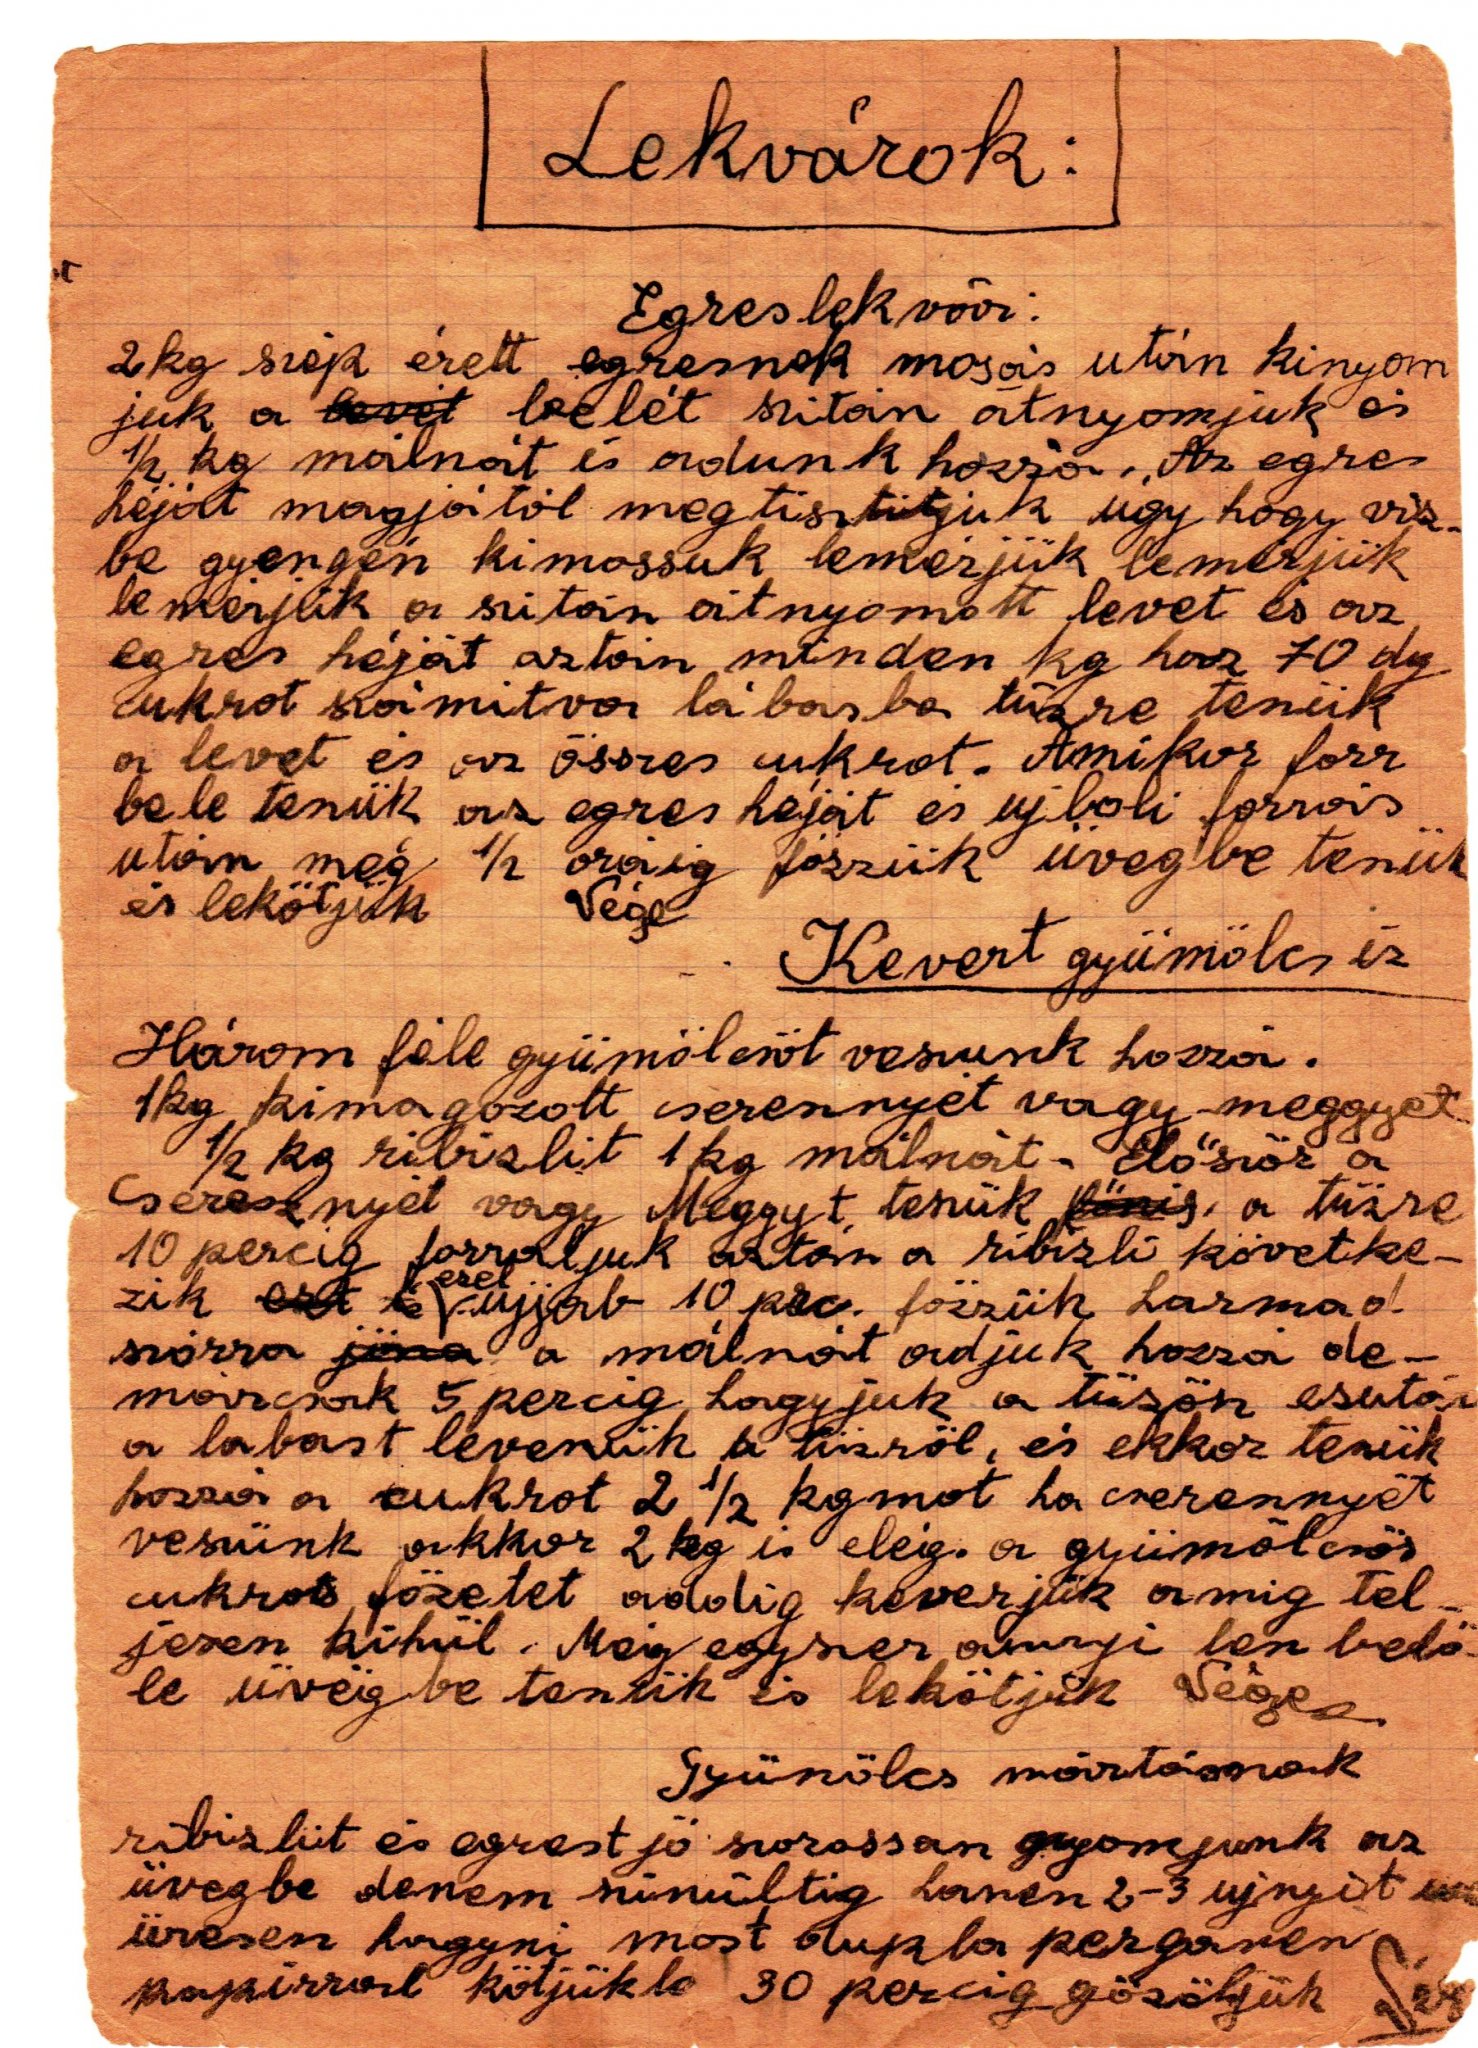 Lekvárok:
Egres lekvár:
2 kg szép érett egresnek mosás után kinyom
juk a levét belét szitán átnyomjuk és
1/2 kg málnát is adunk hozzá. Az egres
héját magjától megtisztitjuk ugy hogy viz-
be gyengén kimossuk lemérjük lemérjük
lemérjük a szitán átnyomott levet és az
egres héját aztán minden kg hoz 70 dg
cukrot számitva lábasba tüzre teszük
a levet és az összes cukrot. Amikor forr
bele teszük az egres héját és ujboli forrás
után még 1/2 oráig főzzük üvegbe teszük
és lekötjük Vége
Kevert gyümölcs iz
Három féle gyümölcsöt veszunk hozzá.
1 kg kimagozott cserennyét vagy meggyet
1/2 kg ribizlit 1 kg málnát. Elöször a
Cseresznyét vagy Meggyt teszük a tüzre
10 percig forraljuk aztán a ribizli követke-
zik ezt ezel ujjab 10 perc. főzzük harmad
szorra jöna a málnát adjuk hozzá de-
márcsak 5 percig hagyjuk a tüzön esután
a labast leveszük a tüzröl, és ekkor teszük
hozzá a cukrot 2 1/2 kgmot ha cserennyét
veszünk akkor 2 kg is elég. a gyümölcsös
cukros főzetet addig keverjük amig tel-
jesen kihül. Még egyszer annyi lesz belö-
le üvegbe teszük és lekötjük Vége
Gyünölcs mártásnak
ribizliit és egrest jó szorossan gyomjunk az
üvegbe denem szinültig hanen 2-3 ujnyit
üresen hagyni most dupla pergamen
papirral kötjükle 30 percig gőzöljük